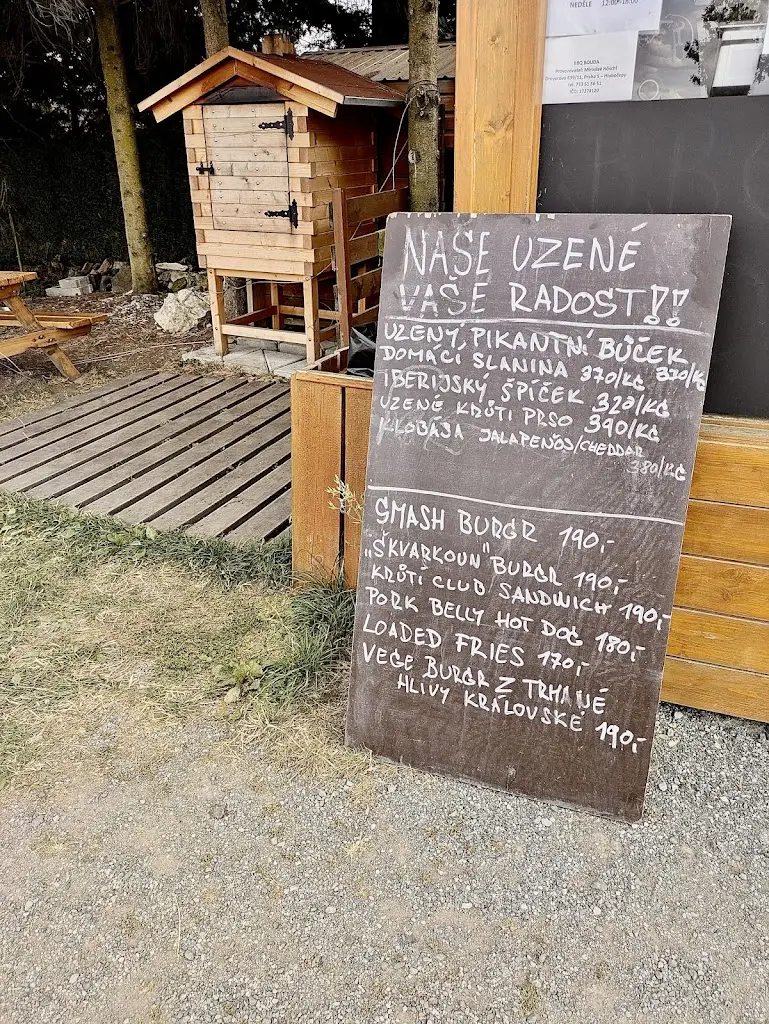 NEDĚLE 12:00-18:00
BBQ BOUDA
NAŠE UZENÉ
VAŠE RADOST!!
UZENÝ PIKANTNÍ BŮČEK 370/KG
DOMÁCÍ SLANINA 370/KG
IBERIJSKÝ ŠPÍČEK 320/KG
UZENÉ KRŮTÍ PRSO 390/KG
KLOBÁSA JALAPEŇOS/CHEDDAR
380/KG
SMASH BURGR 190,-
„ŠKVARKOUN" BURGR 190,-
KRŮTÍ CLUB SANDWICH 190,-
PORK BELLY HOT DOG 180,-
LOADED FRIES 170,-
VEGE BURGR Z TRHANÉ
HLIVY KRÁLOVSKÉ 190,-